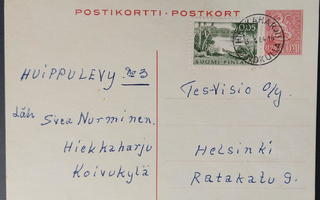 POSTIKORTTI - POSTKORT
0,05
SUOMI-FINLAND
HUIPPULEVY № 3
Läh. Svea Nurminen.
Hiekkaharju
Koivukylä
Tesvisio o/y.
Helsinki
Ratakatu 9.